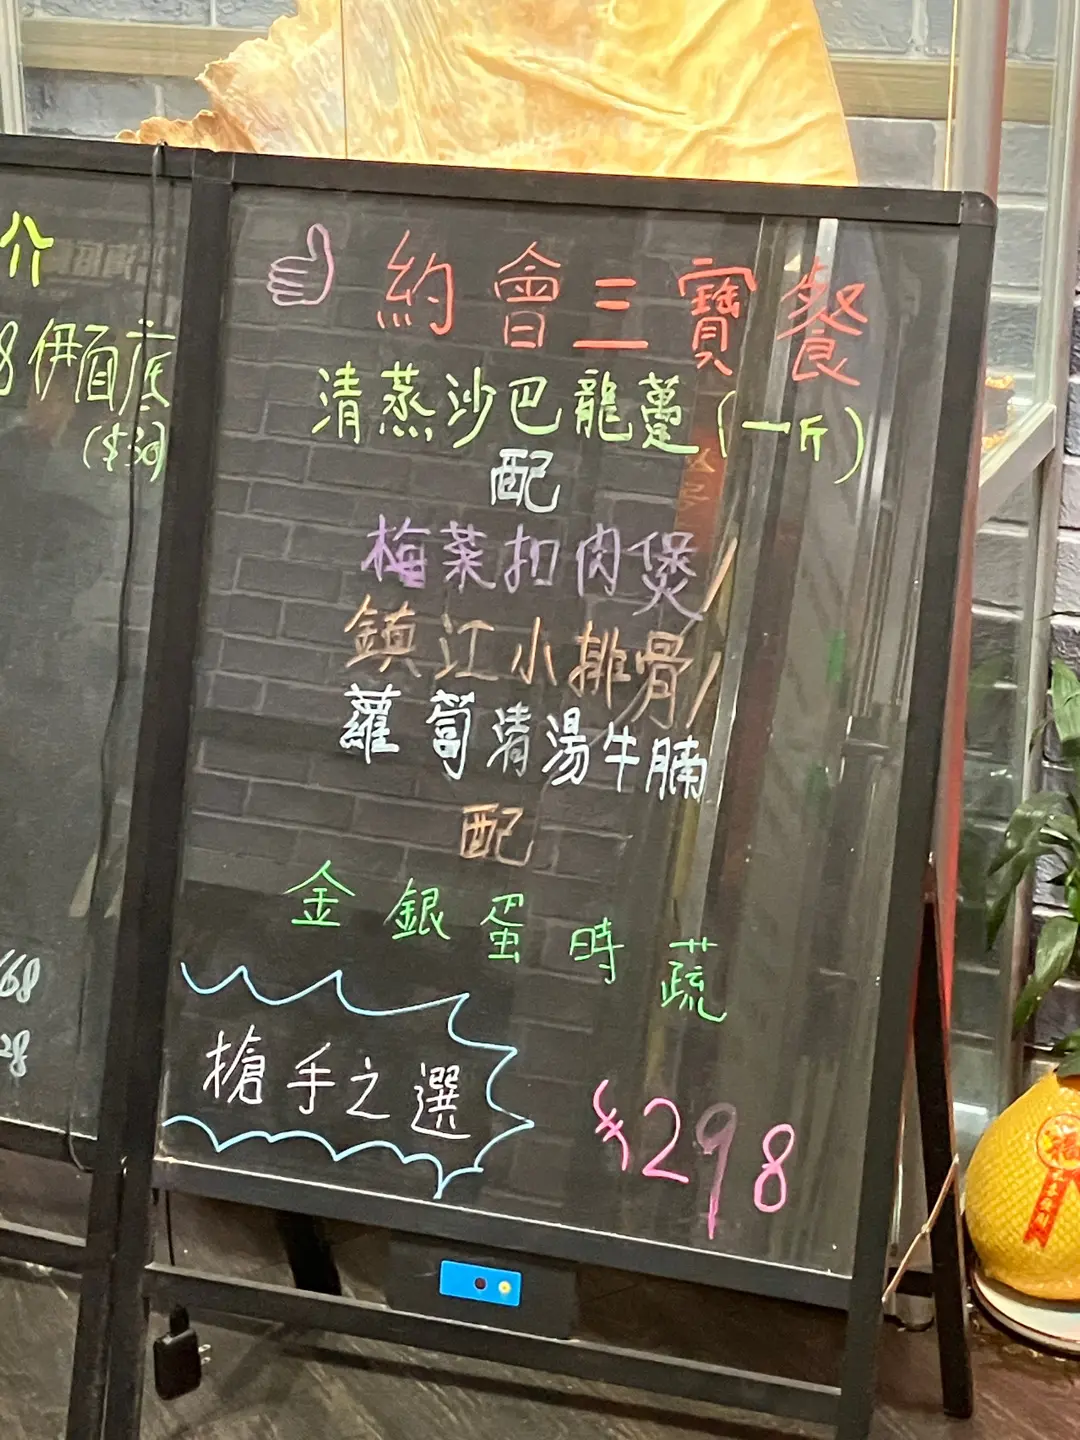 介
8 伊面底
($30)
68
28
約會三寶餐
清蒸沙巴龍躉(一斤)
配
梅菜扣肉煲/
鎮江小排骨/
蘿蔔清湯牛腩
配
金銀蛋時蔬
搶手之選
$298
福